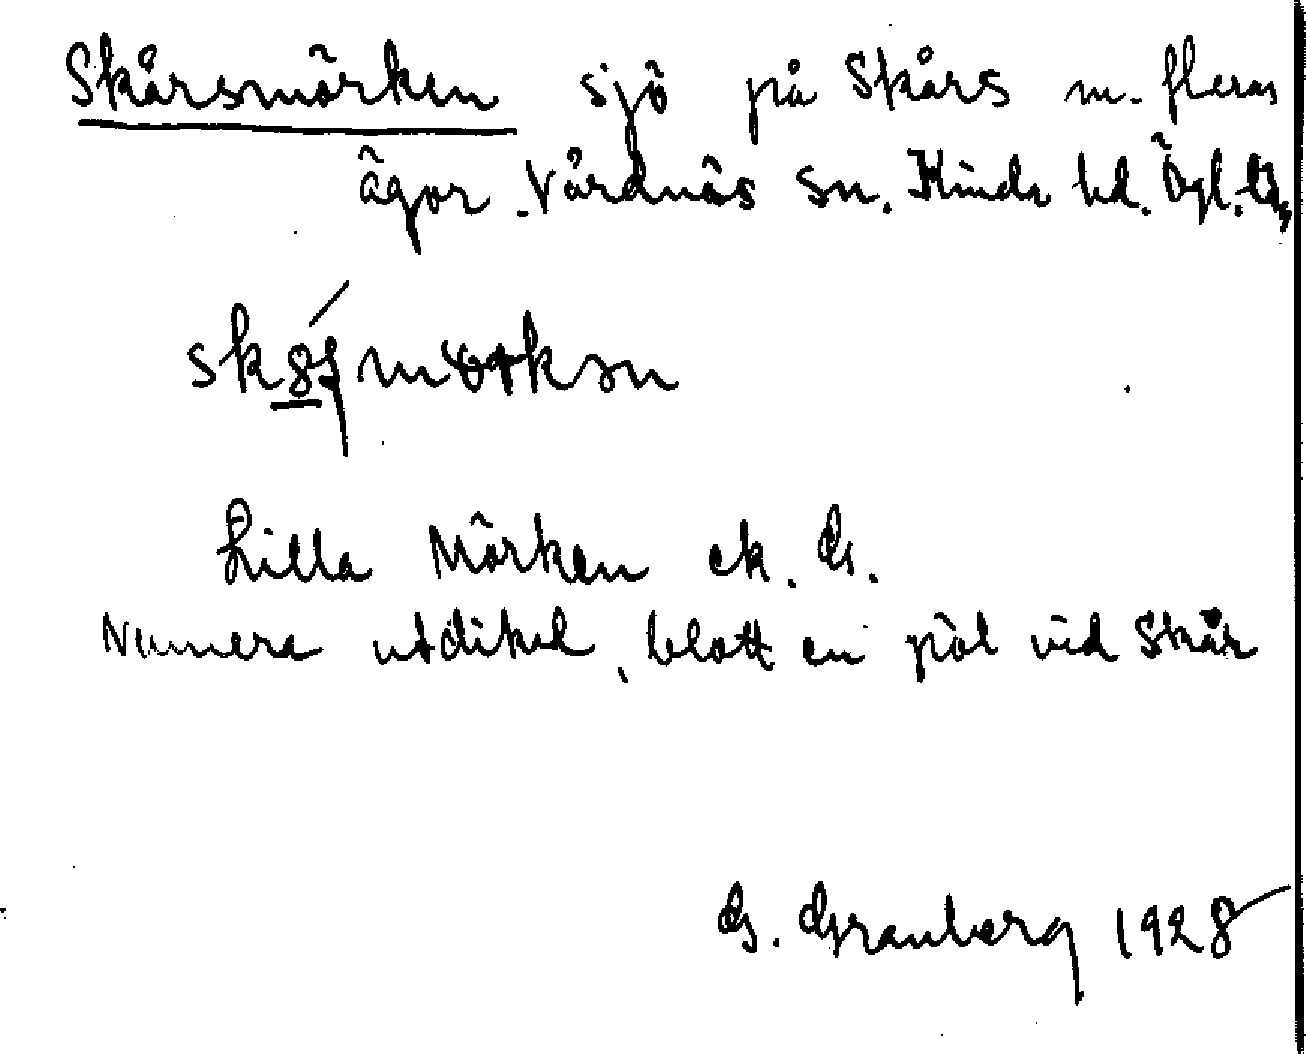 Skårsmörken sjö på Skårs m. fleras
ägor. Vårdnäs sn. Kinds hd. Ögl. län
Lilla Mörken ek. G.
Numera utdikad, blott en pöl vid Skår
G. Granberg 1928